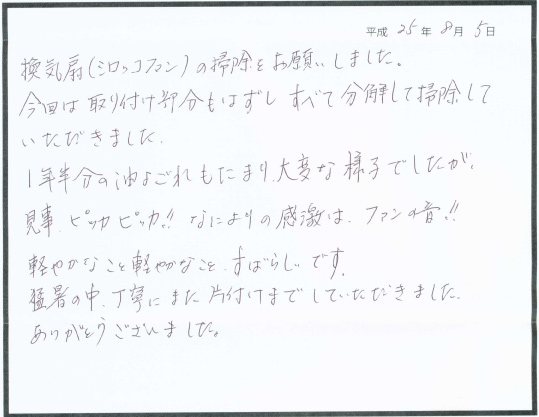 平成 25年 8月 5日
換気扇(シロッコファン)の掃除をお願いしました。
今回は取り付け部分もはずし すべて分解して掃除して
いただきました.
1年半分の油よごれもたまり、大変な様子でしたが、
見事、ピッカピッカ!! なによりの感激は、ファンの音!!
軽やかなこと軽やかなこと、すばらしいです.
猛暑の中、丁寧にまた片付けまでしていただきました.
ありがとうございました。